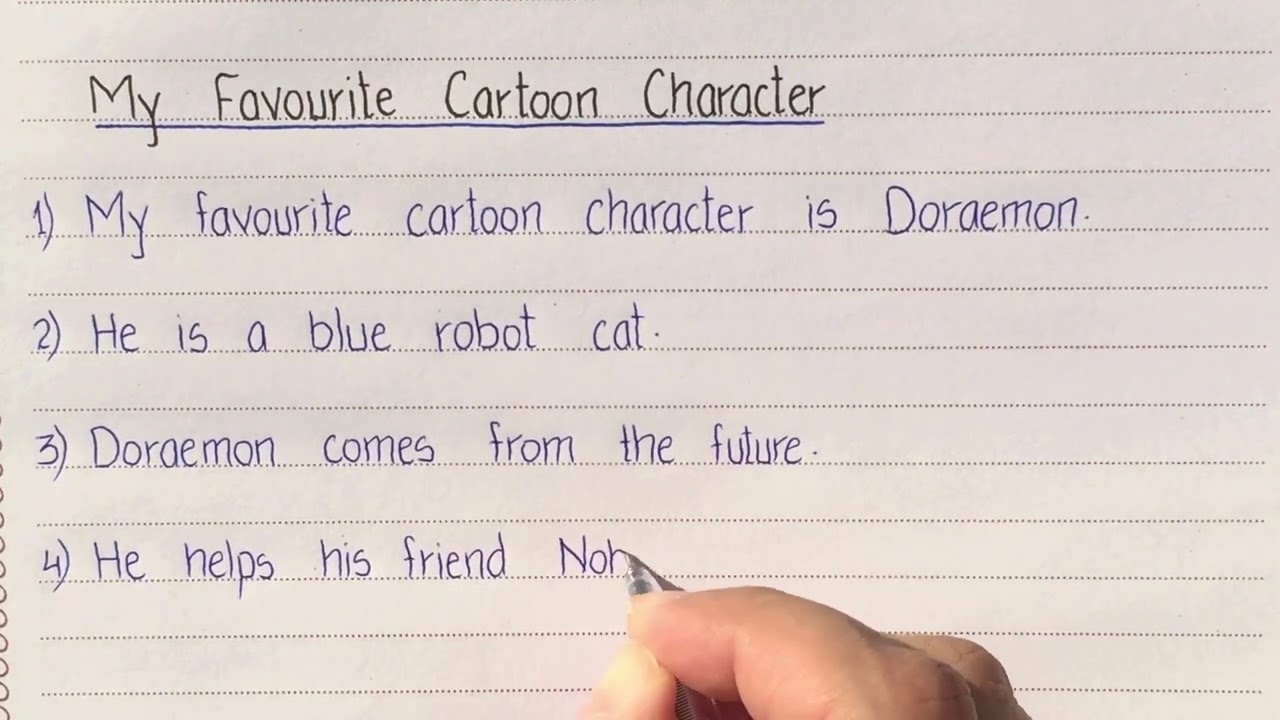 My Favourite Cartoon Character
1) My favourite cartoon character is Doraemon.
2) He is a blue robot cat.
3) Doraemon comes from the future.
4) He helps his friend